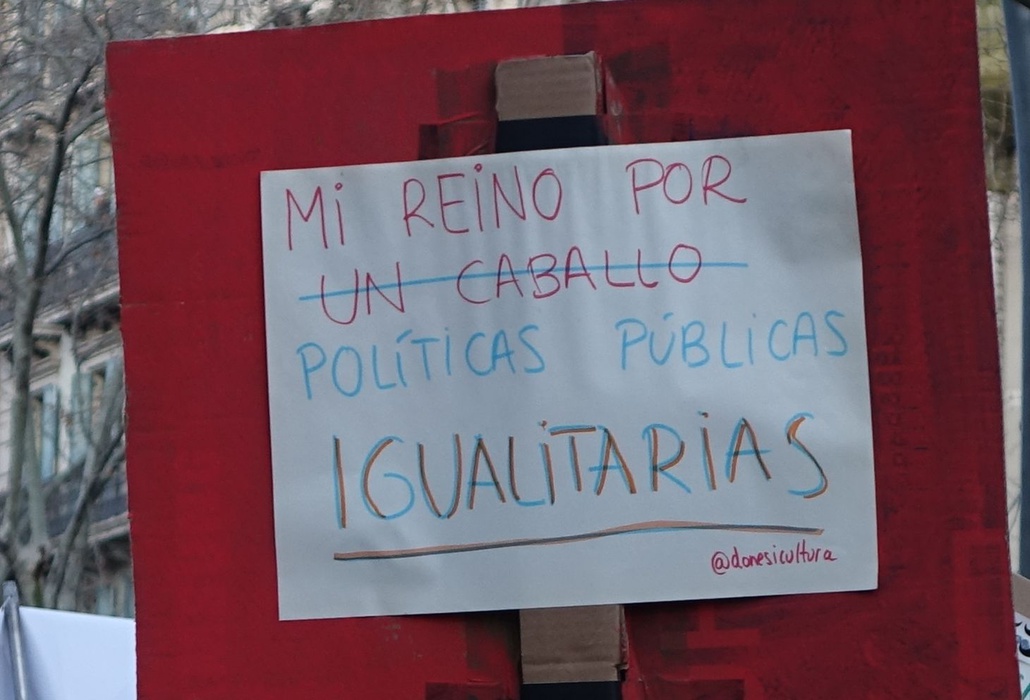 Mi REiNO POR
UN CABALLO
POLÍTiCAS PÚBLiCAS
IGUALiTARiAS
@donesicultura